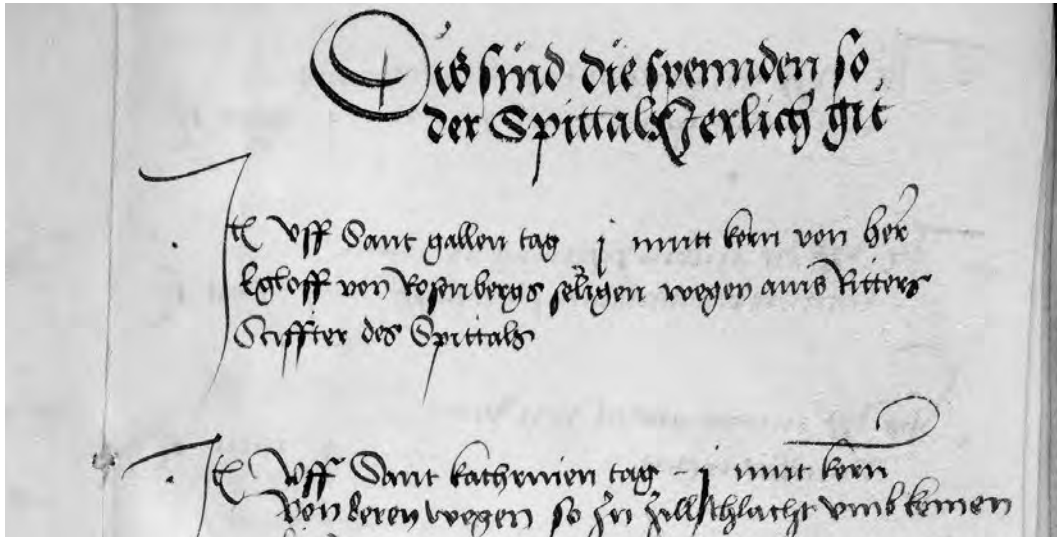 Dis sind die spennden so
der Spittal Jerlich git
Itē vff Sant gallen tag j mutt kern von her
Egloff von Rosenbergs seligen wegen ains Ritters
Stiffter des Spittals
Itē vff Sant kathrinen tag - j mutt kern
von deren wegen so zu zillschlacht vmb kemen